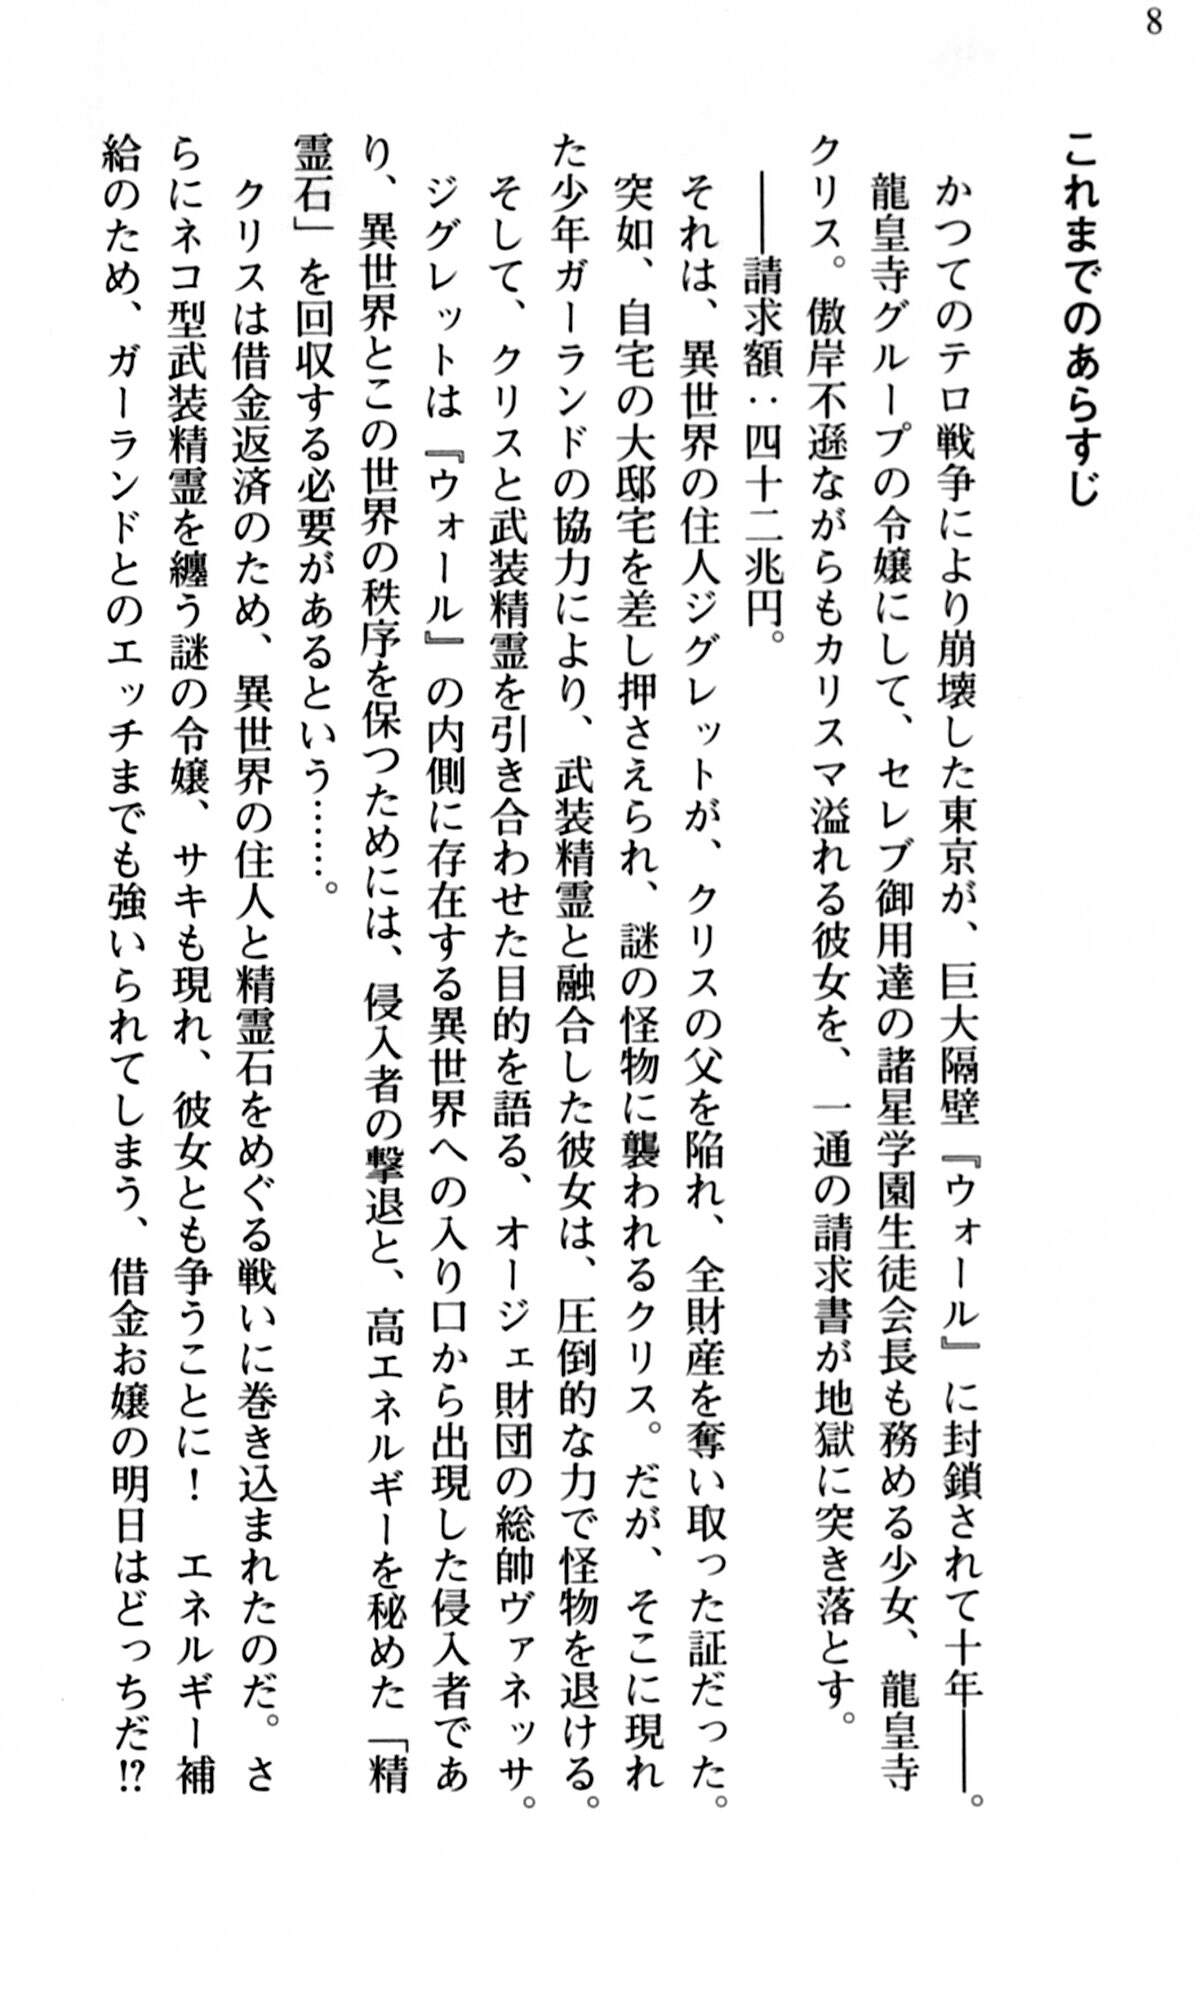 8
これまでのあらすじ
かつてのテロ戦争により崩壊した東京が、巨大隔壁『ウォール』に封鎖されて十年――。
龍皇寺グループの令嬢にして、セレブ御用達の諸星学園生徒会長も務める少女、龍皇寺
クリス。傲岸不遜ながらもカリスマ溢れる彼女を、一通の請求書が地獄に突き落とす。
――請求額：四十二兆円。
それは、異世界の住人ジグレットが、クリスの父を陥れ、全財産を奪い取った証だった。
突如、自宅の大邸宅を差し押さえられ、謎の怪物に襲われるクリス。だが、そこに現れ
た少年ガーランドの協力により、武装精霊と融合した彼女は、圧倒的な力で怪物を退ける。
そして、クリスと武装精霊を引き合わせた目的を語る、オージェ財団の総帥ヴァネッサ。
ジグレットは『ウォール』の内側に存在する異世界への入り口から出現した侵入者であ
り、異世界とこの世界の秩序を保つためには、侵入者の撃退と、高エネルギーを秘めた「精
霊石」を回収する必要があるという……。
クリスは借金返済のため、異世界の住人と精霊石をめぐる戦いに巻き込まれたのだ。さ
らにネコ型武装精霊を纏う謎の令嬢、サキも現れ、彼女とも争うことに！　エネルギー補
給のため、ガーランドとのエッチまでも強いられてしまう、借金お嬢の明日はどっちだ!?